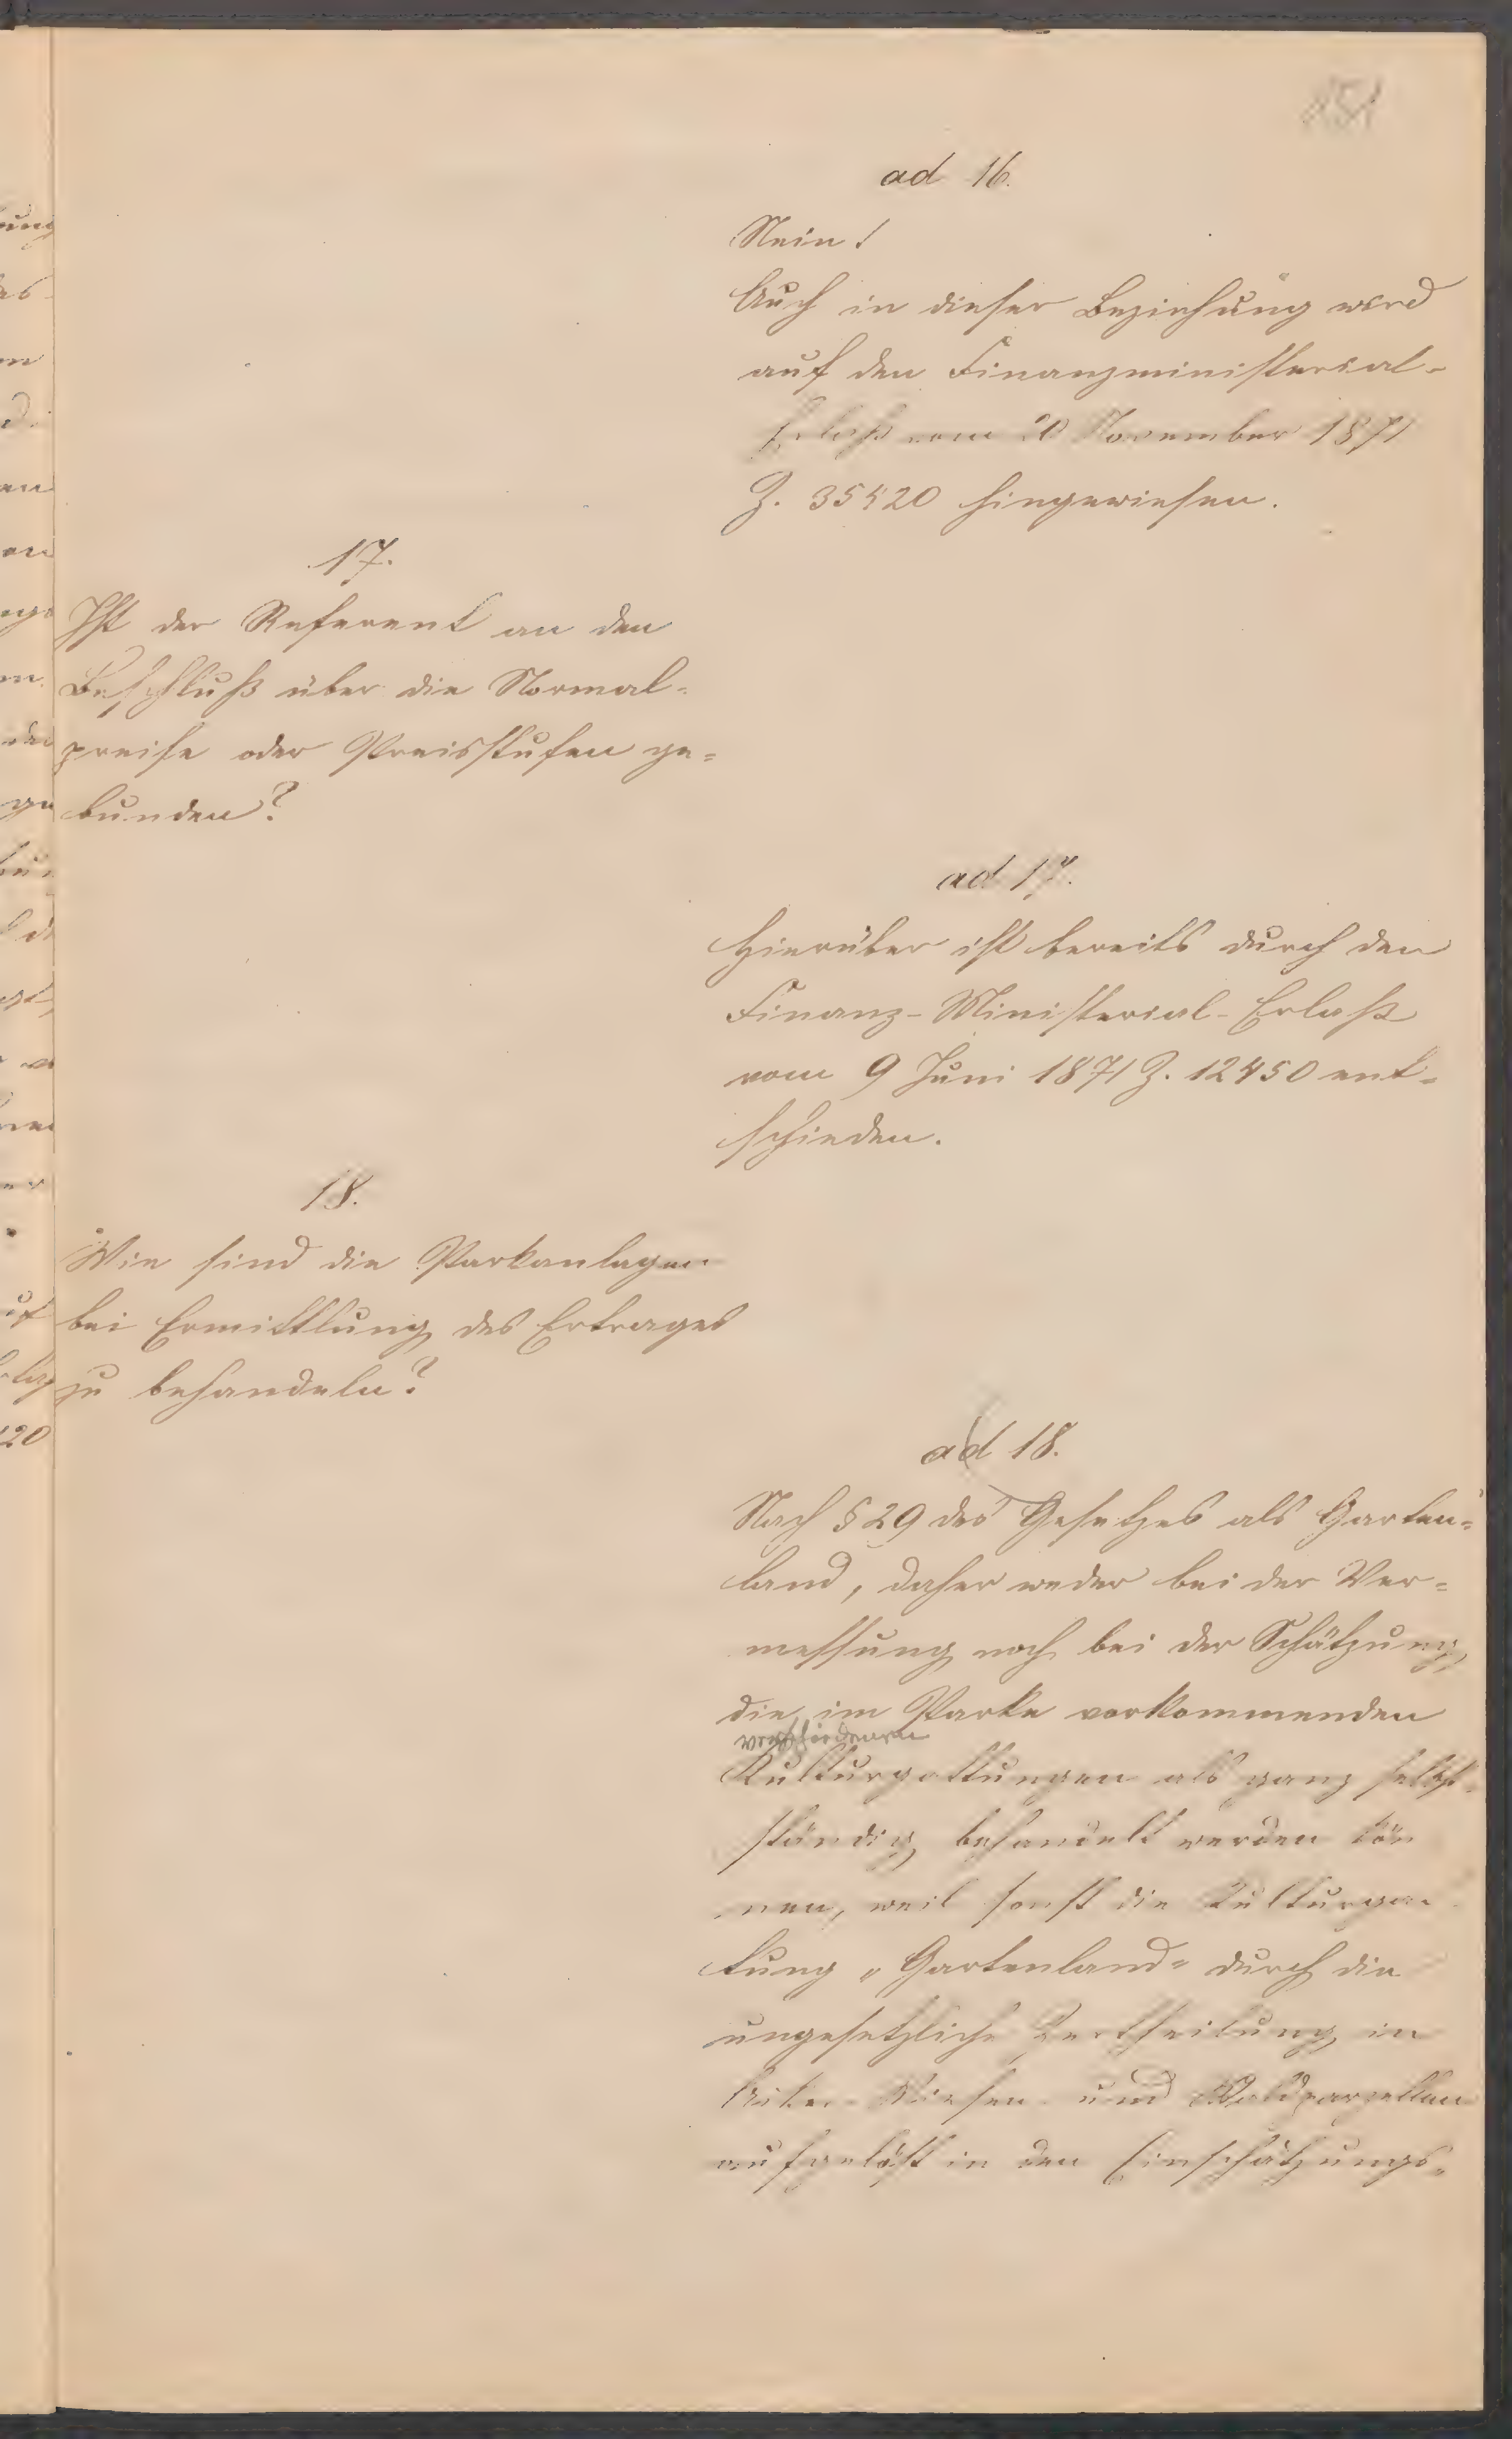 151
ad 16.
Nein!
Auch in dieser Beziehung wird
auf den Finanzministerial-
Erlaß vom 20 November 1871
Z. 35420 hingewiesen.
17.
Ist der Referent an den
Beschluß über die Normal-
preise oder Preisstufen ge=
bunden?
ad 17.
Hierüber ist bereits durch den
Finanz-Ministerial-Erlaß
vom 9 Juni 1871 Z. 12450 ent=
schieden.
18.
Wie sind die Parkanlagen
bei Ermittlung des Ertrages
zu behandeln?
ad 18.
Nach § 29 des Gesetzes als Garten=
land, daher weder bei der Ver=
messung noch bei der Schätzung,
die im Parke vorkommenden
verschiedenen
Kulturgattungen als ganz selbst-
ständig behandelt werden kön
nen, weil sonst die Kulturgat
tung „Gartenland" durch die
ungesetzliche Zertheilung in
Äcker- Wiesen- und Waldparzellen
aufgelöst in den Einschätzungs-